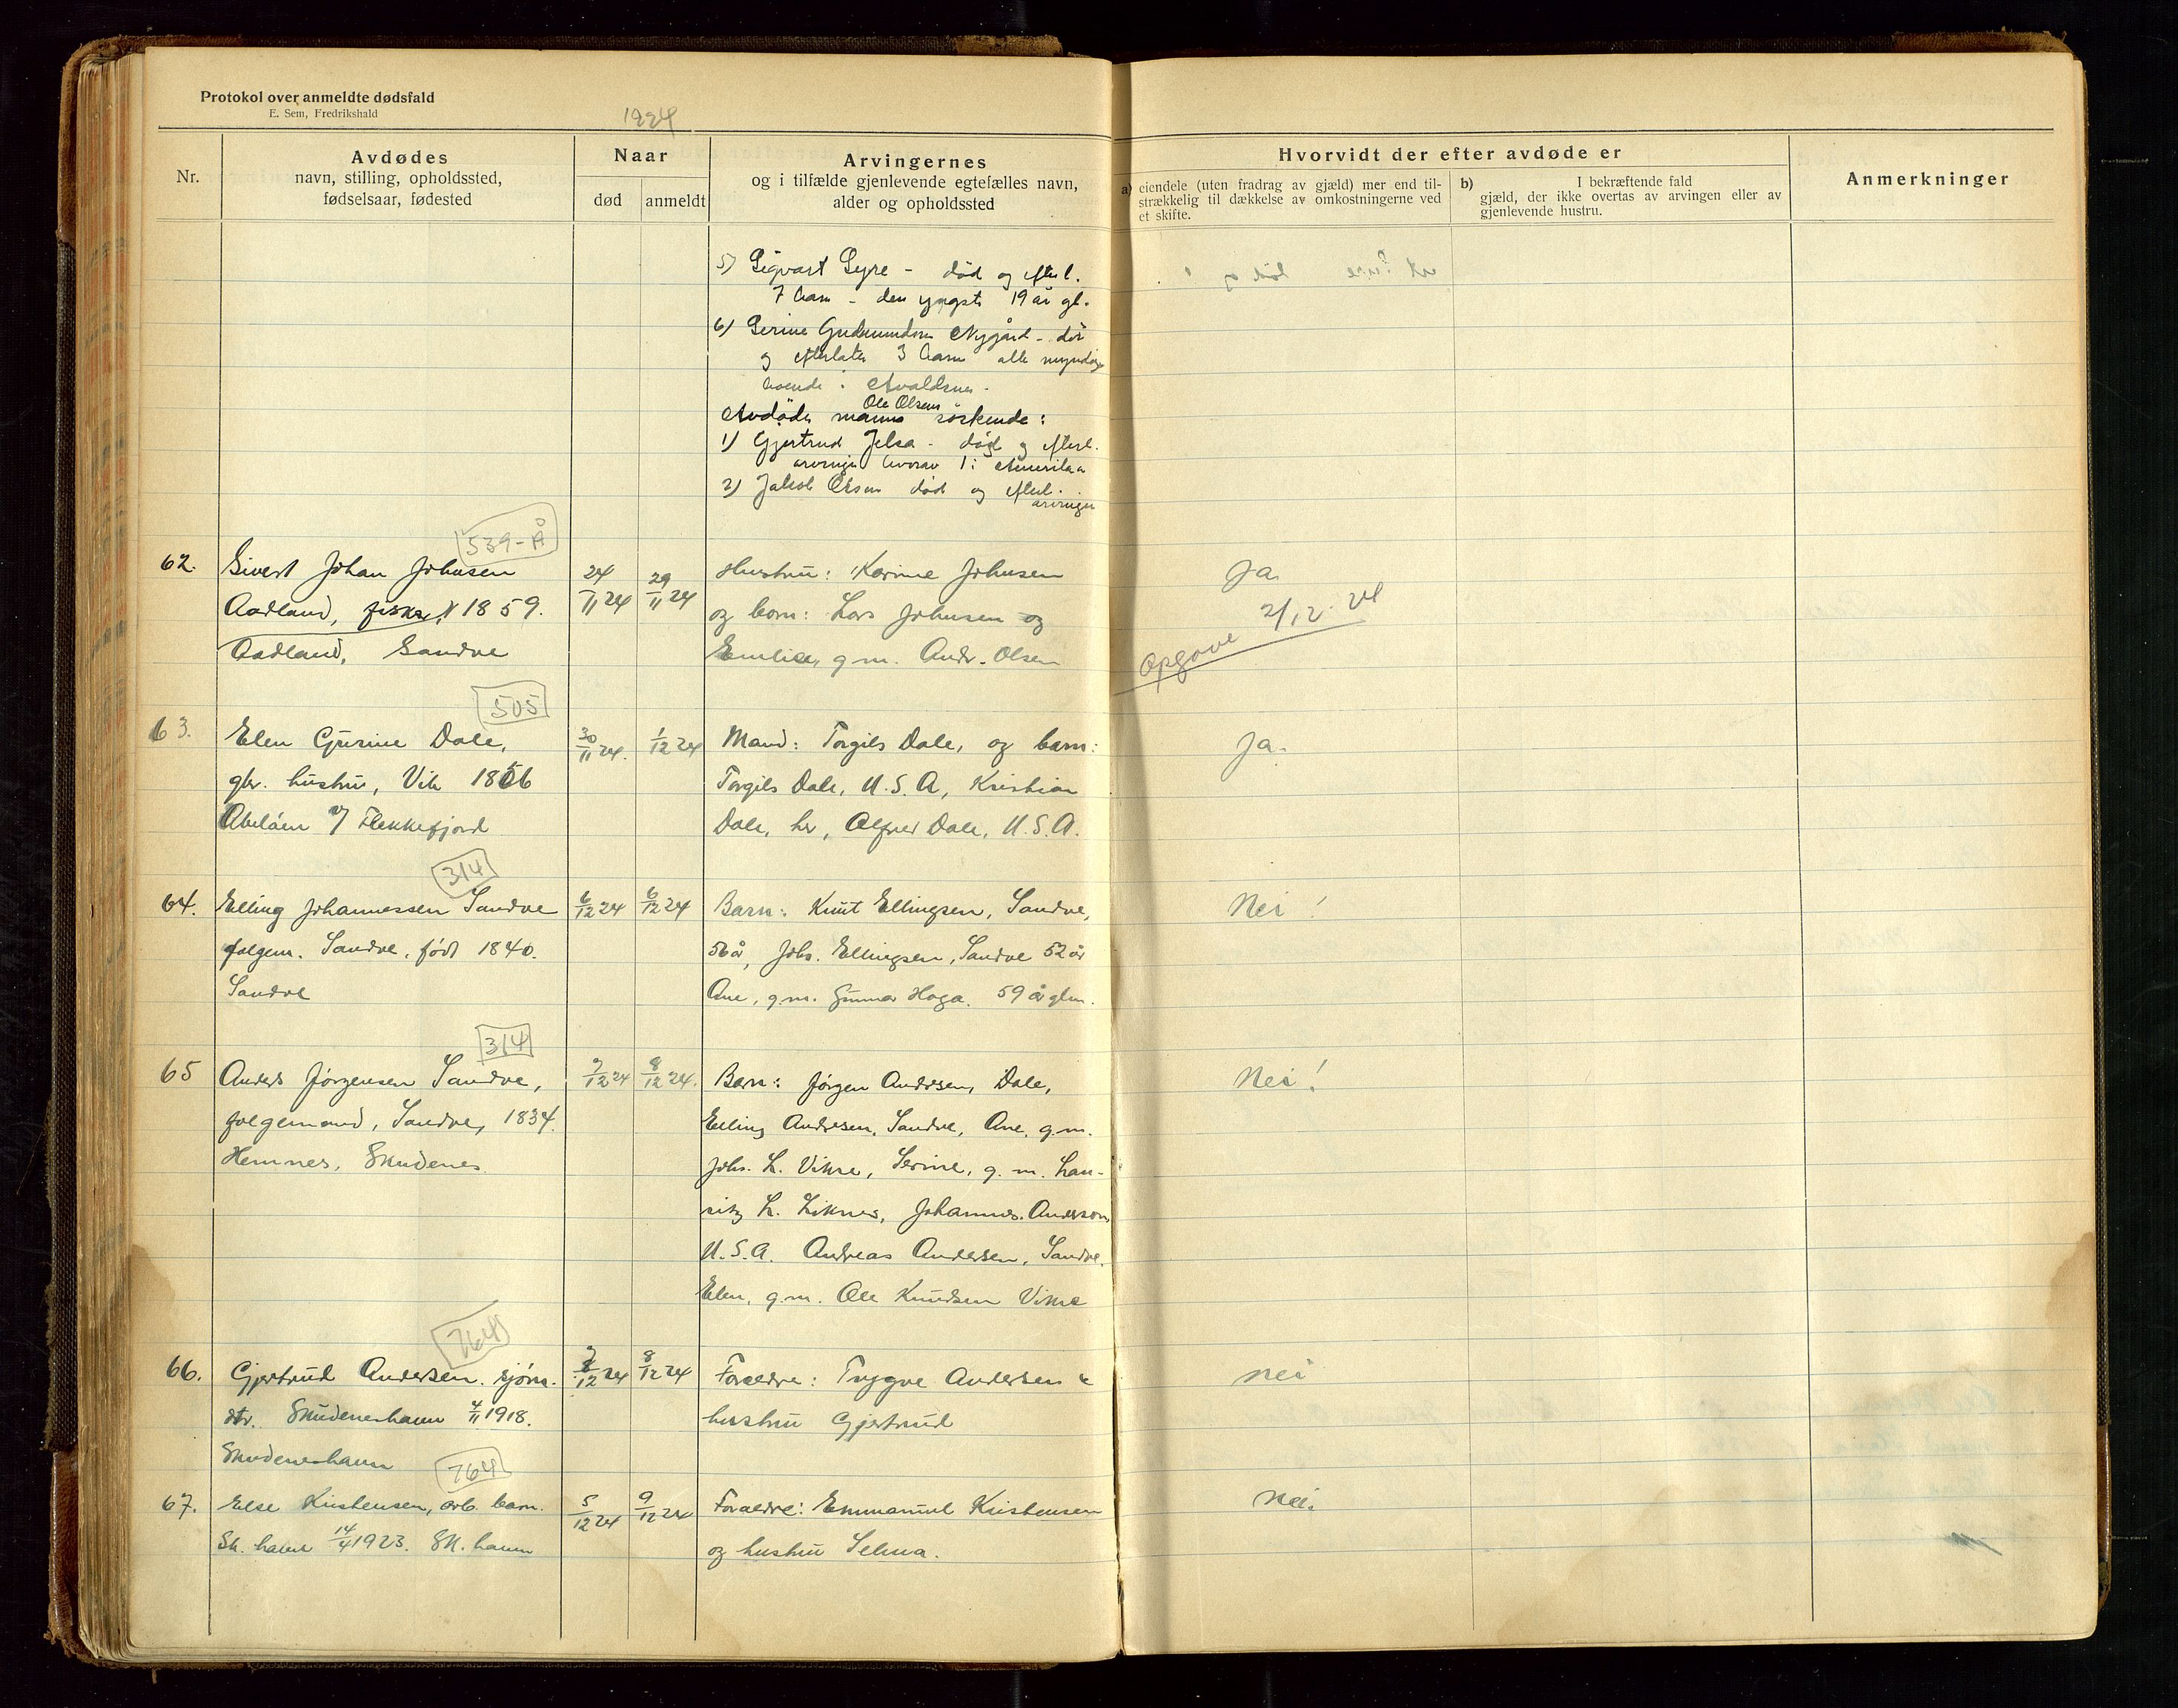 Protokol over anmeldte dødsfald
E. Sem, Fredrikshald
1924
Nr.
Avdødes
navn, stilling, opholdssted,
fødselsaar, fødested
Naar
død
anmeldt
Arvingernes
og i tilfælde gjenlevende egtefælles navn,
alder og opholdssted
Hvorvidt der efter avdøde er
a) eiendele (uten fradrag av gjæld) mer end til-
strækkelig til dækkelse av omkostningerne ved
et skifte.
b) I bekræftende fald
gjæld, der ikke overtas av arvingen eller av
gjenlevende hustru.
Anmerkninger
5) Sigvart Syre - død og efterl.
7 barn - den yngste 19 år gl.
6) Serine Gudmundsen Nygård - død
og efterlater 3 barn alle myndige
boende i Avaldsnes.
Ole Olsens
Avdødes manns søskende:
1) Gjertrud Jelsa - død og efterl.
arvinger hvorav 1 i Amerika
2) Jakob Olsen død og efterl.
arvinger
539-Å
62. Sivert Johan Johnsen
Aadland, fisker, 1859.
Aadland, Sandve
24/11 24
29/11 24
Hustru: Karine Johnsen
og barn: Lars Johnsen og
Emilie, g.m. Andr. Olsen
Ja
Opgave 2/12. 24
505
63. Elen Gurine Dale,
gbr. hustru, Vik 1856
Abeløen v/ Flekkefjord
30/11 24.
1/12 24
Mand: Torgils Dale, og barn:
Torgils Dale, U.S.A, Kristian
Dale, her, Alfred Dale, U.S.A.
Ja.
314
64. Elling Johannessen Sandve
folgem. Sandve, født 1840.
Sandve
6/12 24
6/12 24
Barn: Knut Ellingsen, Sandve,
56 år, Johs. Ellingsen, Sandve 52 år
Ane, g.m. Gunnar Hoga. 59 år glm.
Nei!
314
65 Anders Jørgensen Sandve,
folgemand, Sandve, 1834.
Hemnes, Skudenes.
7/12 24
8/12 24.
Barn: Jørgen Andersen, Dale,
Elling Andersen, Sandve, Ane, g.m.
Johs. L. Vikre, Serine, g.m. Lau-
ritz L. Liknes, Johannes Anderson,
U.S.A. Andreas Andersen, Sandve.
Elen, g.m. Ole Knudsen Vikre
Nei!
764
66. Gjertrud Andersen. sjøm.
dtr. Skudeneshavn 4/11 1918.
Skudeneshavn
7/12 24
8/12 24
Forældre: Trygve Andersen &
hustru Gjertrud
nei
764
67. Else Kristensen, arb. barn.
Sk. havn 14/4 1923. Sk. havn
5/12 24
9/12 24
Forældre: Emmanuel Kristensen
og hustru Selma.
nei.